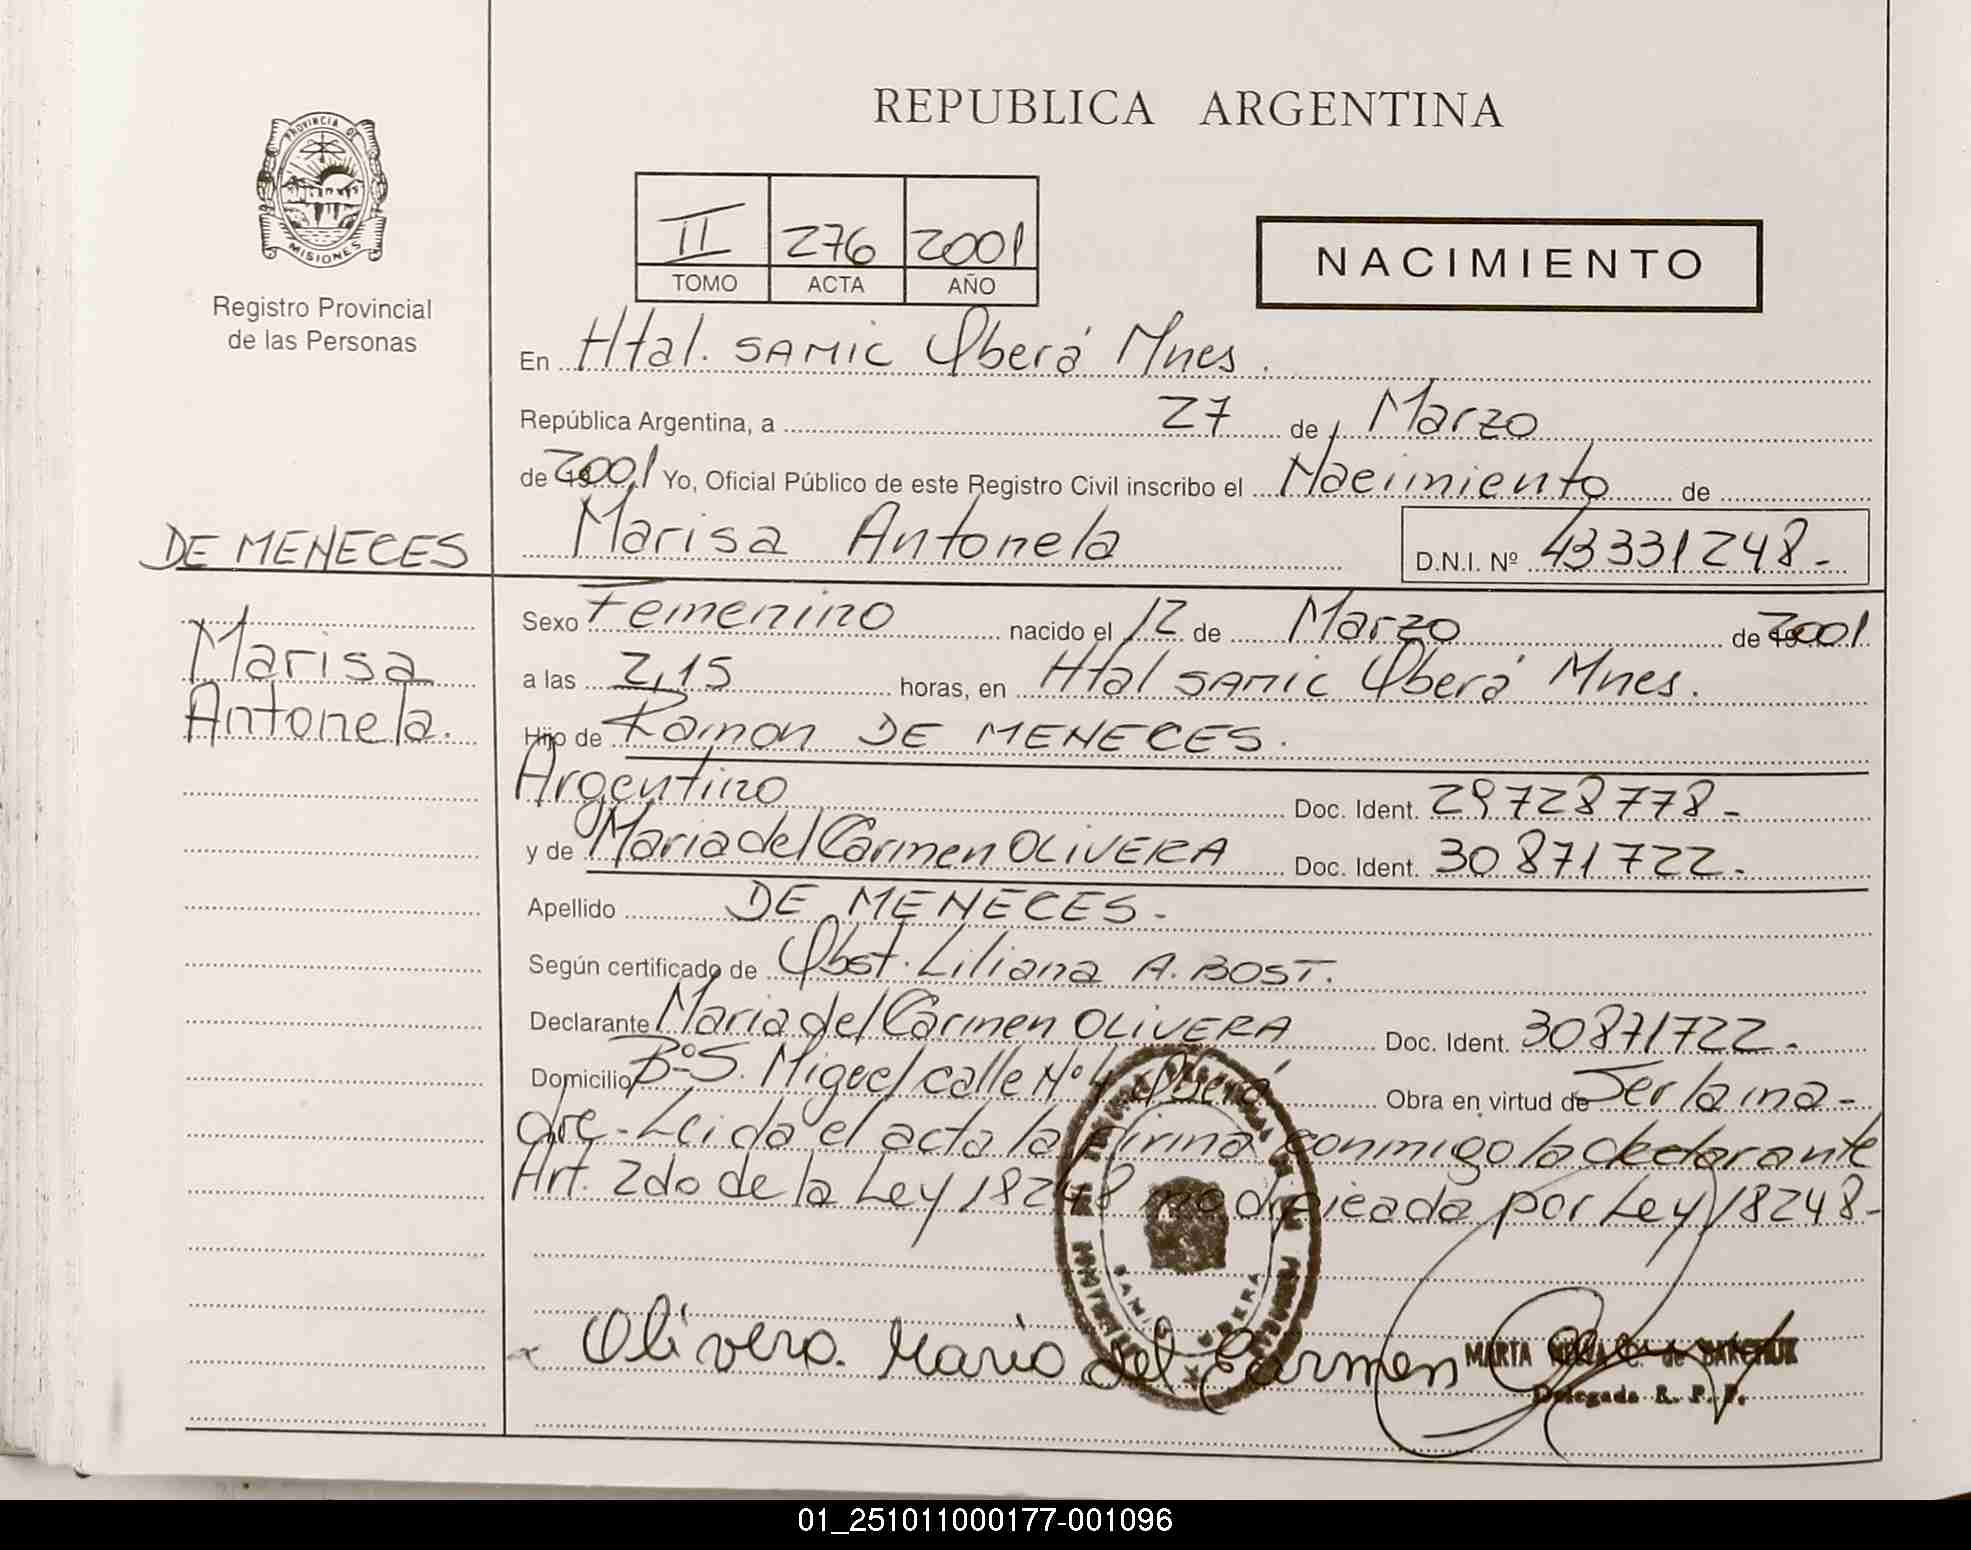 REPUBLICA ARGENTINA
PROVINCIA DE
MISIONES
Registro Provincial
de las Personas
II 276 2001
TOMO ACTA AÑO
NACIMIENTO
En Htal. SAMIC Oberá Mnes.
República Argentina, a 27 de Marzo
de 2001 Yo, Oficial Público de este Registro Civil inscribo el Nacimiento de
DE MENECES
Marisa Antonela D.N.I. Nº 43331248-
Marisa
Antonela.
Sexo Femenino nacido el 12 de Marzo de 2001
a las 2,15 horas, en Htal SAMIC Oberá Mnes.
Hijo de Ramon DE MENECES.
Argentino Doc. Ident. 29728778-
y de Maria del Carmen OLIVERA Doc. Ident. 30871722-
Apellido DE MENECES-
Según certificado de Obst. Liliana A. BOST.
Declarante Maria del Carmen OLIVERA Doc. Ident. 30871722-
Domicilio Bº S. Miguel calle Nº 4 Oberá Obra en virtud de Ser la ma-
dre- Leida el acta la firma conmigo la declarante
Art. 2do de la Ley 18248 modificada por Ley 18248-
Olivera Maria del Carmen
MARTA C. de
Delegada R. P. P.
01_251011000177-001096